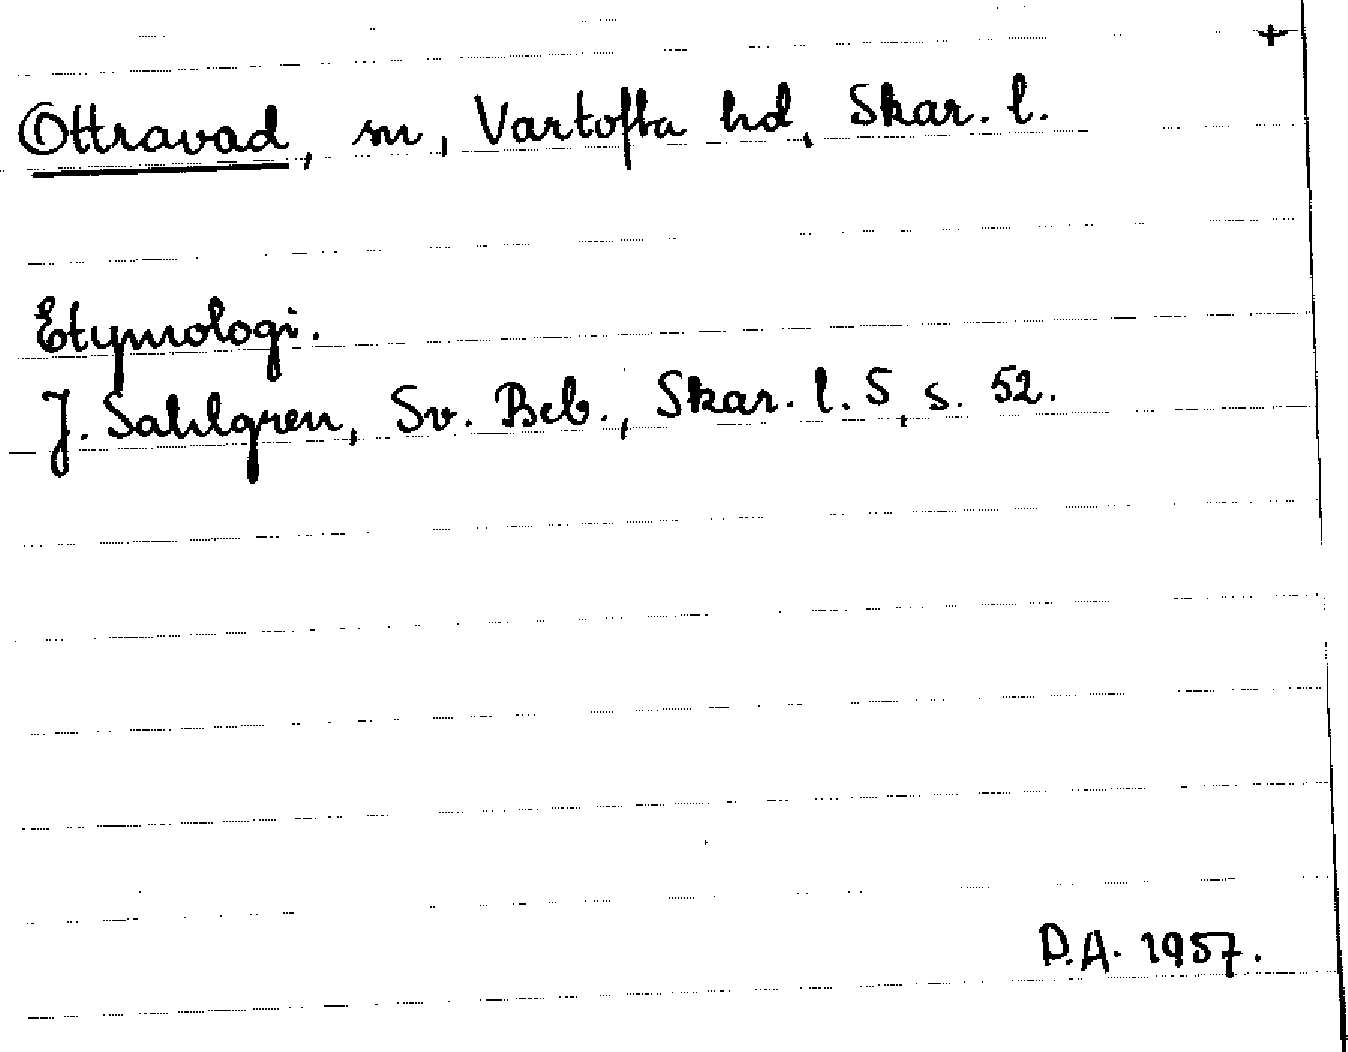 +
Ottravad, sn, Vartofta hd, Skar. l.
Etymologi.
J. Sahlgren, Sv. Beb., Skar. l. 5, s. 52.
D.A. 1957.